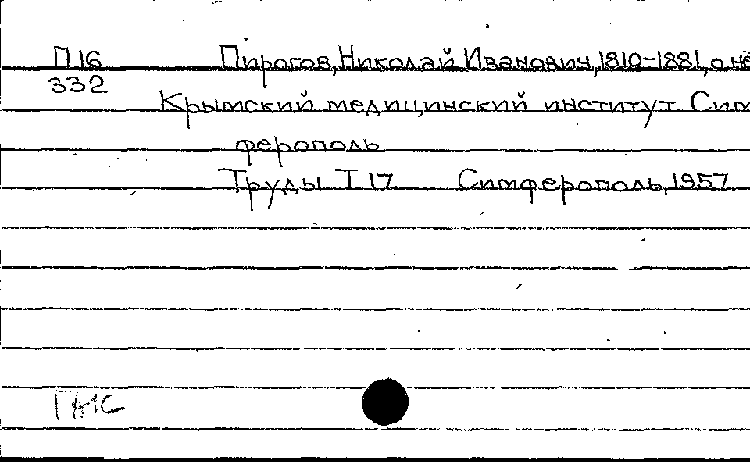 П16 Пирогов, Николай Иванович, 1810-1881, о нё
332
Крымский медицинский институт. Сим
ферополь
Труды Т 17 Симферополь, 1957